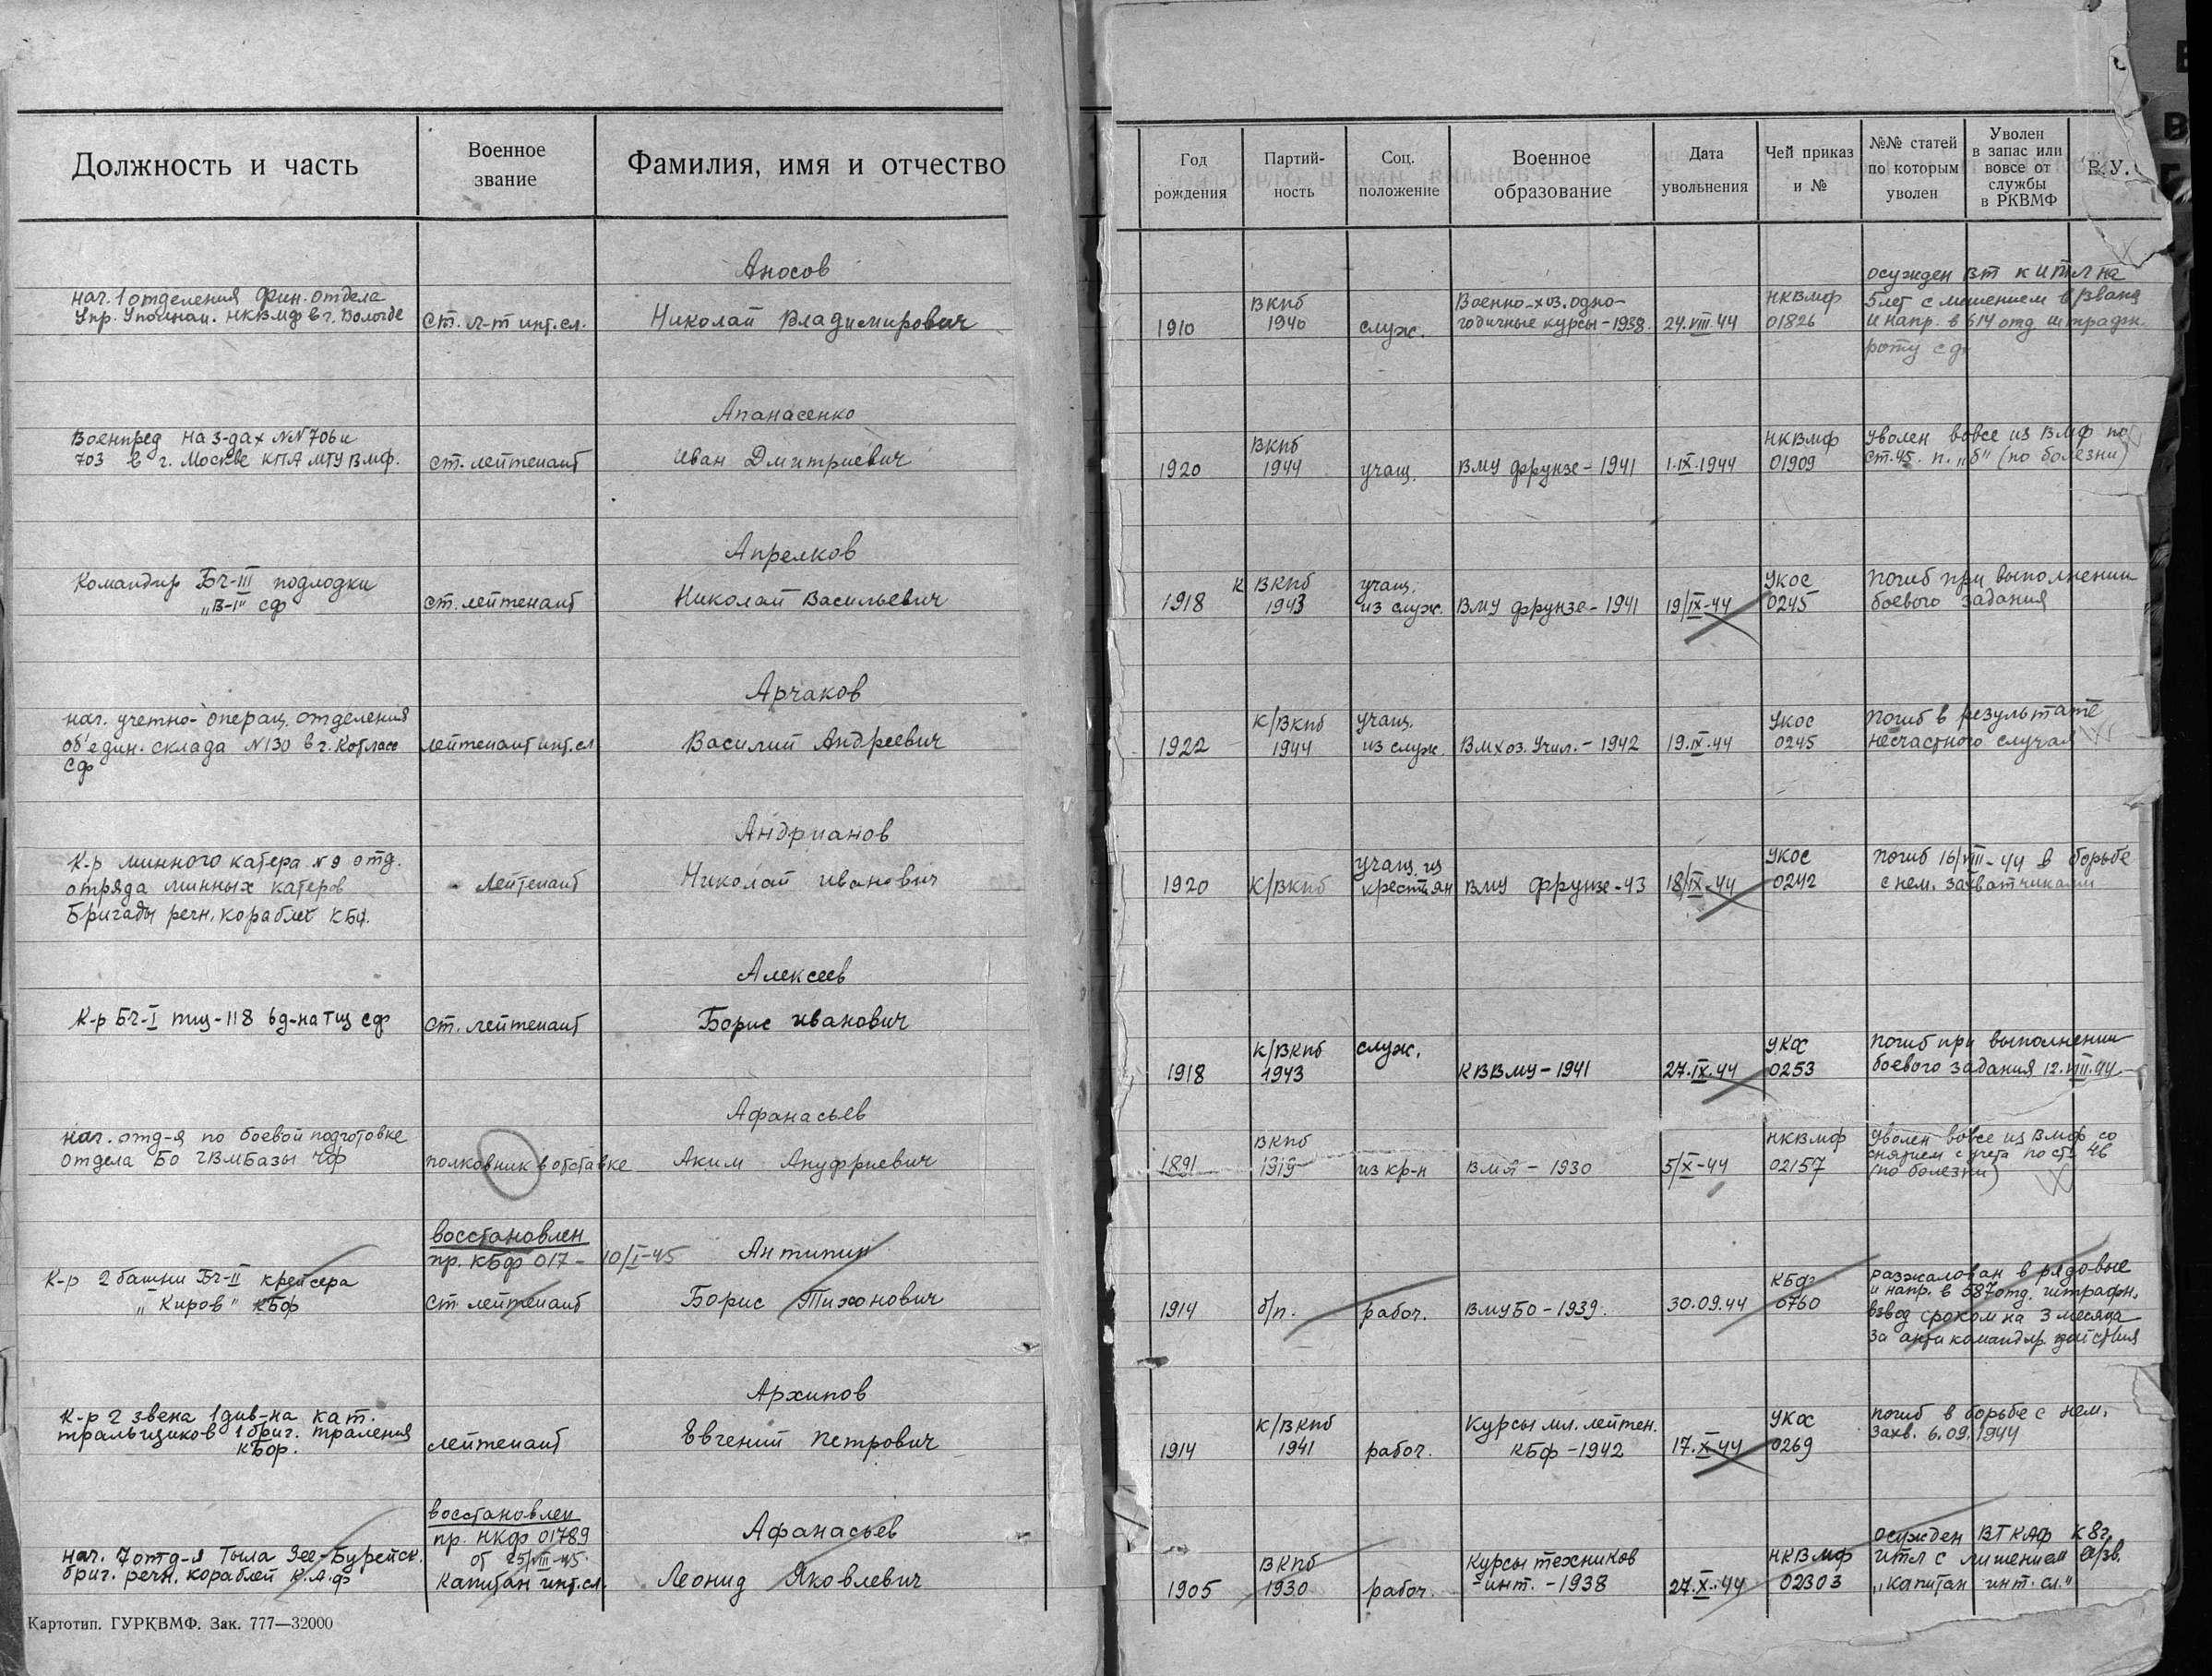 Должность и часть
Военное
звание
Фамилия, имя и отчество
Год
рождения
Партий-
ность
Соц.
положение
Военное
образование
Дата
увольнения
Чей приказ
и №
№№ статей
по которым
уволен
Уволен
в запас или
вовсе от
службы
в РКВМФ
В.У.
Аносов
нач. 1 отделения Фин. отдела
Упр. Уполном. НКВМФ в г. Вологде
ст. л-т инт. сл.
Николай Владимирович
1910
ВКПб
1940
служ.
Военно-хоз. одно-
годичные курсы-1938.
24.VIII.44
НКВМФ
01826
осужден ВТ к ИТЛ на
5 лет с лишением в/звания
и напр. в 614 отд штрафн.
роту СФ
Апанасенко
Военпред на з-дах NN 706 и
703 в г. Москве КПА МТУ ВМФ.
ст. лейтенант
Иван Дмитриевич
1920
ВКПб
1944
учащ.
ВМУ Фрунзе-1941
1.IX.1944
НКВМФ
01909
Уволен вовсе из ВМФ по
ст.45. п. „б" (по болезни)
Апрелков
Командир БЧ-III подлодки
„В-1" СФ
ст. лейтенант
Николай Васильевич
1918
к ВКПб
1943
учащ.
из служ.
ВМУ Фрунзе-1941
19/IX-44
УКОС
0245
Погиб при выполнении
боевого задания
Арчаков
нач. учетно-операц. отделения
об'един. склада N130 в г. Котласе
СФ
лейтенант инт. сл
Василий Андреевич
1922
к/ВКПб
1944
учащ.
из служ.
ВМхоз. Учил.-1942
19.IX.44
УКОС
0245
Погиб в результате
несчастного случая
Андрианов
К-р минного катера N9 отд.
отряда минных катеров
Бригады речн. кораблей КБФ.
Лейтенант
Николай Иванович
1920
к/ВКПб
учащ. из
крестьян
ВМУ Фрунзе-43
18/IX-44
УКОС
0242
Погиб 16/VIII-44 в борьбе
с нем. захватчиками
Алексеев
К-р БЧ-I ТЩ-118 6 д-на ТЩ СФ
ст. лейтенант
Борис Иванович
1918
к/ВКПб
1943
служ.
КВВМУ-1941
27.IX.44
УКОС
0253
Погиб при выполнении
боевого задания 12.VIII.44
Афанасьев
нач. отд-я по боевой подготовке
отдела БО ГВМБазы ЧФ
полковник в отставке
Аким Ануфриевич
1891
ВКПб
1919
из кр-н
ВМА-1930
5/X-44
НКВМФ
02157
Уволен вовсе из ВМФ со
снятием с учета по ст. 46
(по болезни)
восстановлен
пр. КБФ 017- 10/I-45
Антипин
К-р 2 башни БЧ-II крейсера
„Киров" КБФ
ст лейтенант
Борис Тихонович
1914
б/п.
рабоч.
ВМУБО-1939.
30.09.44
КБФ
0760
разжалован в рядовые
и напр. в 587 отд. штрафн.
взвод сроком на 3 месяца
за антикомандир. действия
Архипов
К-р 2 звена 1 див-на кат.
тральщиков 1 бриг. траления
КБФ.
лейтенант
Евгений Петрович
1914
к/ВКПб
1941
рабоч.
Курсы мл. лейтен.
КБФ-1942
17.X.44
УКОС
0269
погиб в борьбе с нем.
захв. 6.09.1944
восстановлен
пр. НКФ 01789
от 25/VIII-45.
Афанасьев
нач. 7 отд-я Тыла Зее-Бурейск.
бриг. речн. кораблей К.А.Ф
капитан инт. сл.
Леонид Яковлевич
1905
ВКПб
1930
рабоч.
Курсы техников
-инт.-1938
27.X.44
НКВМФ
02303
осужден ВТ КАФ к 8 г.
ИТЛ с лишением в/зв.
„капитан инт. сл."
Картотип. ГУРКВМФ. Зак. 777—32000